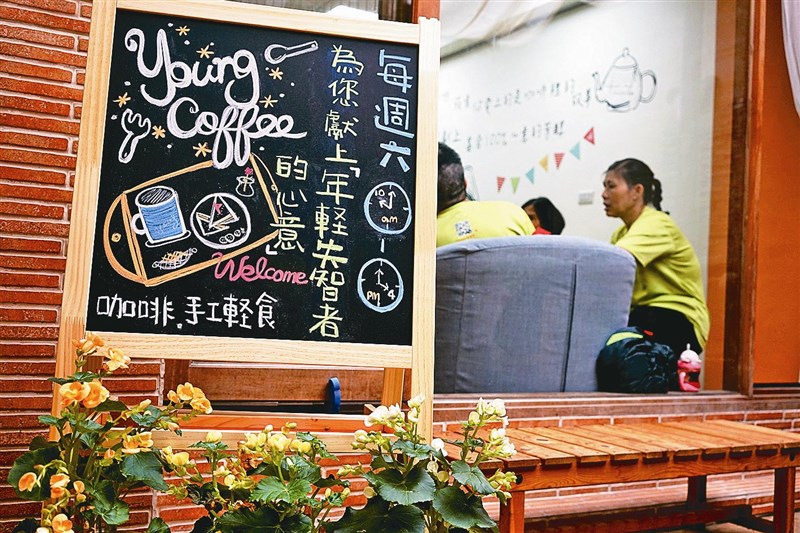 Young
Coffee
每週六
10
am
pm 4
為您獻上「年輕失智者
的心意」
Welcome
咖啡.手工輕食
100%